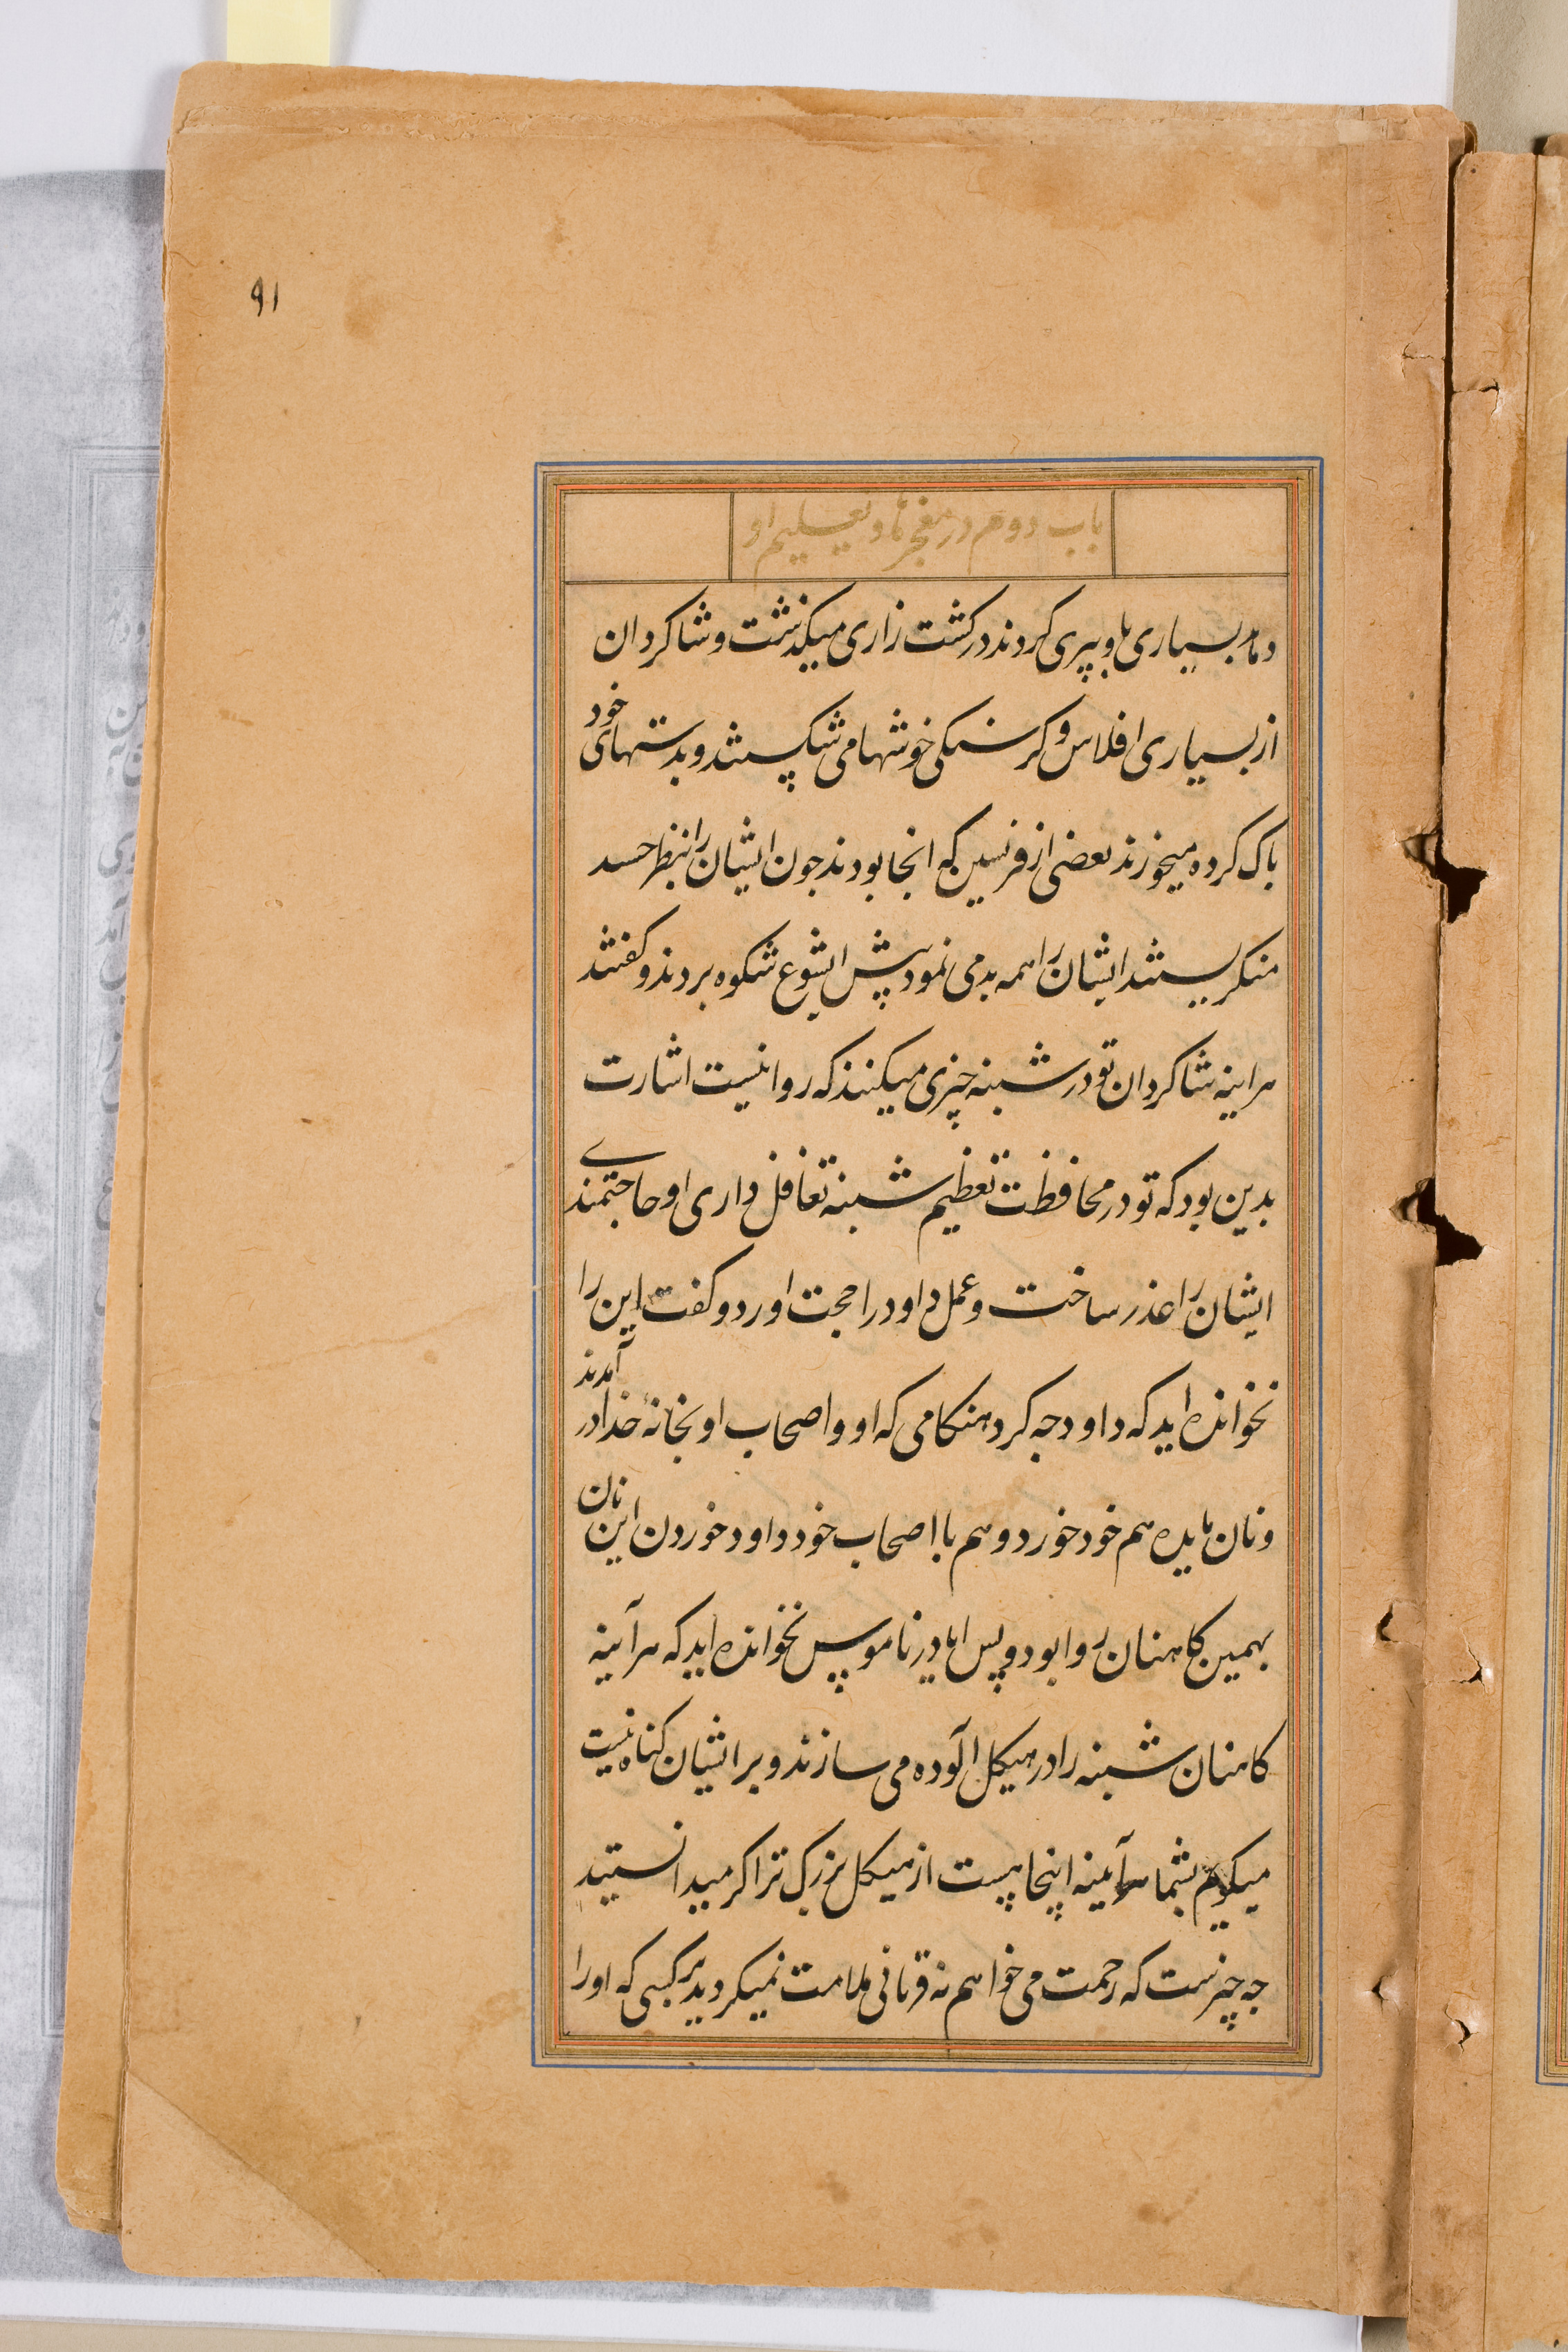 ۹۱
باب دوم در معجزها و تعلیم او
و مردم بسیاری باو پیری کردند در کشت زاری میکذشت و شاکردان
از بسیاری افلاس و کرسنکی خوشها می شکستند و بدستهای خود
باک کرده میخورند بعضی از فرنسین که انجا بودند جون ایشان را بنظر حسد
منکریستند ایشان را همه بد می نمود پیش ایشوع شکوه بردند و کفتند
هراینه شاکردان تو در شبنه چیزی میکنند که روا نیست اشارت
بدین بود که تو در محافظت تعظیم شبنه تغافل داری او حاجتمندی
ایشان را عذر ساخت و عمل داود را حجت اورد و کفت این را
نخوانده اید که داود جه کرد هنکامی که او و اصحاب او بخانۀ خدا در آمدند
و نان مایده هم خود خورد و هم با اصحاب خود داود خوردن این نان
بهمین کاهنان روا بود و پس ایا در ناموس نخوانده اید که هرآینه
کاهنان شبنه را در هیکل آلوده می سازند و بر ایشان کناه نیست
میکویم بشما هرآینه اینجا هست از هیکل بزرک تر اکر میدانستید
جه چیزست که رحمت می خواهم نه قربانی ملامت نمیکردید بر کسی که او را